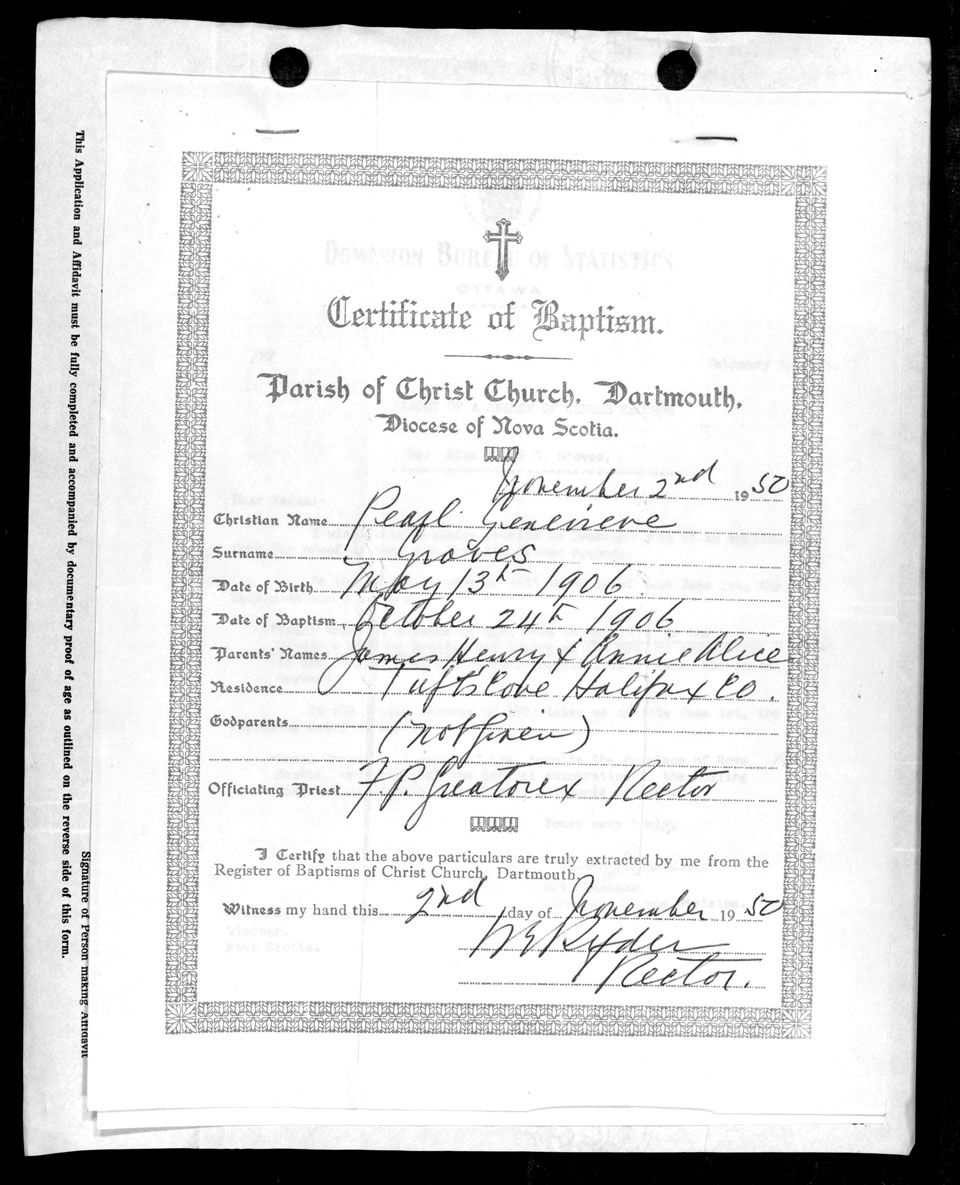 DOMINION BUREAU OF STATISTICS
OTTAWA
Certificate of Baptism.
Parish of Christ Church, Dartmouth,
Diocese of Nova Scotia.
November 2nd 1950
Christian Name Pearl Genevieve
Surname Groves
Date of Birth May 13th 1906
Date of Baptism October 24th 1906
Parents' Names James Henry & Annie Alice
Residence Tufts Cove Halifax Co.
Godparents (not given)
Officiating Priest F P. Greatorex Rector
I Certify that the above particulars are truly extracted by me from the
Register of Baptisms of Christ Church, Dartmouth.
Witness my hand this 2nd day of November 1950
Ryder
Rector.
Windsor.
Nova Scotia.
This Application and Affidavit must be fully completed and accompanied by documentary proof of age as outlined on the reverse side of this form.
Signature of Person making Affidavit